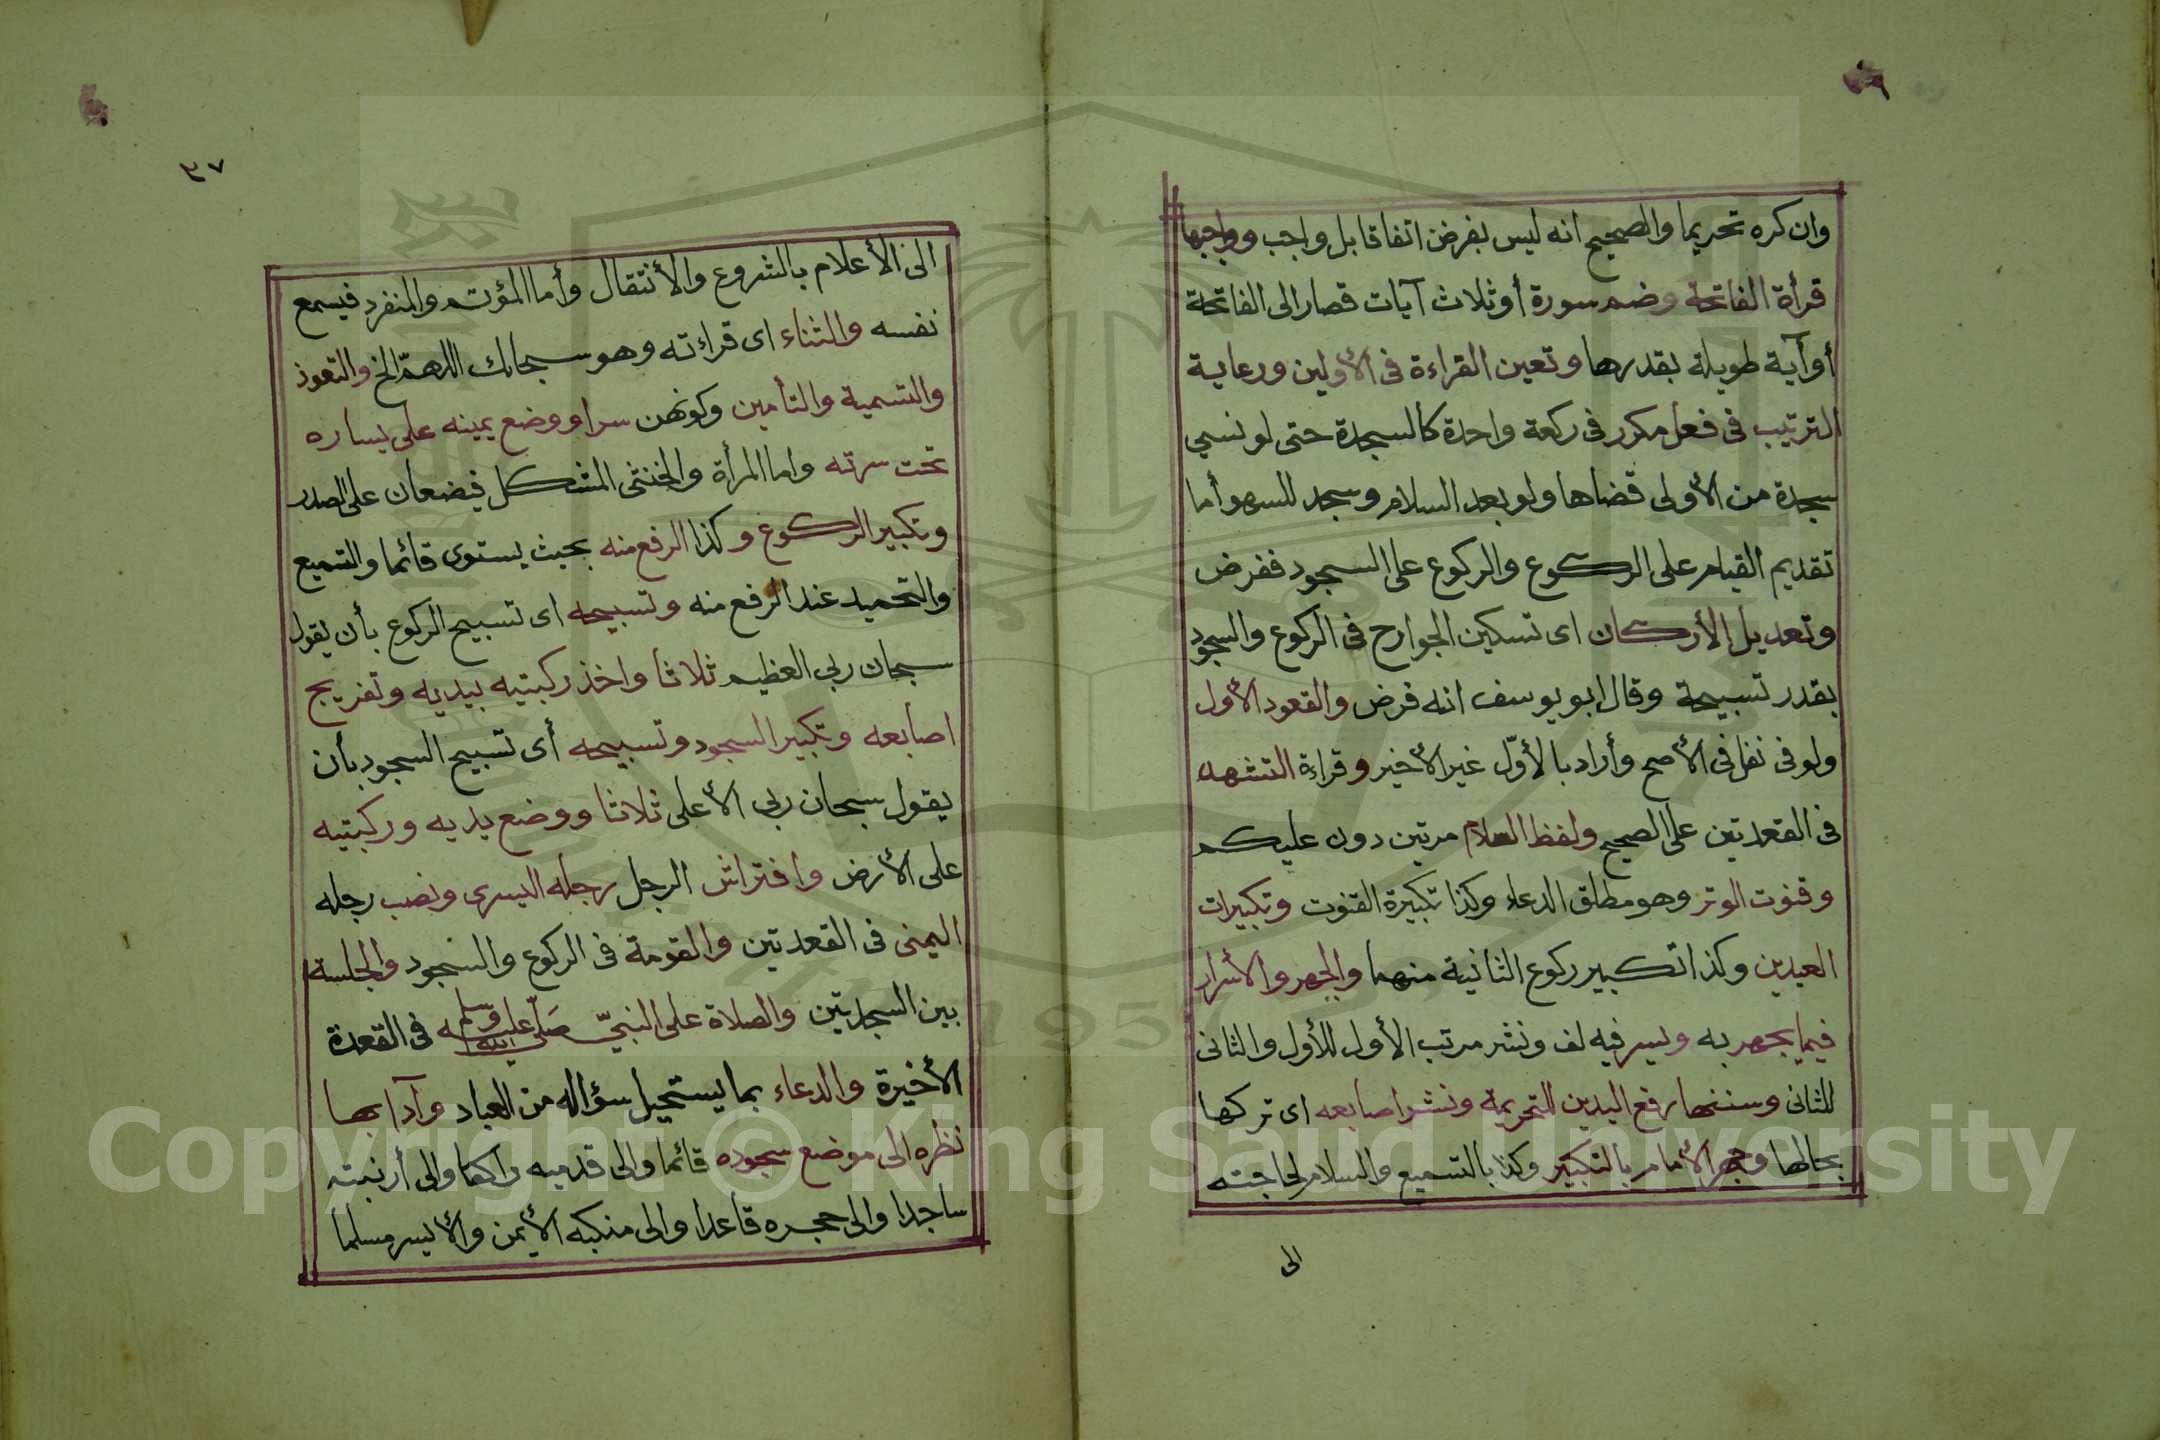 وان كره تحريما والصحيح انه ليس بفرض اتفاقا بل واجب وواجبها
قرأة الفاتحة وضم سورة أو ثلاث آيات قصار الى الفاتحة
أو آية طويلة بقدرها وتعين القراءة فى الأولين ورعاية
الترتيب فى فعل مكرر فى ركعة واحدة كالسجدة حتى لو نسي
سجدة من الأولى قضاها ولو بعد السلام وسجد للسهو أما
تقديم القيام على الركوع والركوع على السجود ففرض
وتعديل الأركان اى تسكين الجوارح فى الركوع والسجود
بقدر تسبيحة وقال ابو يوسف انه فرض والقعود الأول
ولو فى نفل فى الأصح وأراد بالأوّل غير الأخير وقراءة التشهد
فى القعدتين على الصحيح ولفظ السلام مرتين دون عليكم
وقنوت الوتر وهو مطلق الدعاء وكذا تكبيرة القنوت وتكبيرات
العيدين وكذا تكبير ركوع الثانية منهما والجهر والأسرار
فيما يجهر به ويسر فيه لف ونشر مرتب الأول للأول والثانى
للثانى وسننها رفع اليدين للتحريمة ونشر اصابعه اى تركها
بحالها وجهر الأمام بالتكبير وكذا بالتسميع والسلام لحاجته
الى
٣٧
الى الأعلام بالشروع والأنتقال وأما المؤتم والمنفرد فيسمع
نفسه والثناء اى قراءته وهو سبحانك اللهمّ الخ والتعوذ
والتسمية والتأمين وكونهن سرا ووضع يمينه على يساره
تحت سرته واما المرأة والخنثى المشكل فيضعان على الصدر
وتكبير الركوع وكذا الرفع منه بحيث يستوى قائما والتسميع
والتحميد عند الرفع منه وتسبيحه اى تسبيح الركوع بأن يقول
سبحان ربى العظيم ثلاثا واخذ ركبتيه بيديه وتفريج
اصابعه وتكبير السجود وتسبيحه أى تسبيح السجود بأن
يقول سبحان ربى الأعلى ثلاثا ووضع يديه وركبتيه
على الأرض وافتراش الرجل رجله اليسرى ونصب رجله
اليمنى فى القعدتين والقومة فى الركوع والسجود والجلسة
بين السجدتين والصلاة على النبيّ صلّى الله عليه وسلم فى القعدة
الأخيرة والدعاء بما يستحيل سؤاله من العباد وآدابها
نظره الى موضع سجوده قائما والى قدميه راكعا والى أرنبته
ساجدا والى حجره قاعدا والى منكبه الأيمن والأيسر مسلما
Copyright © King Saud University
1957